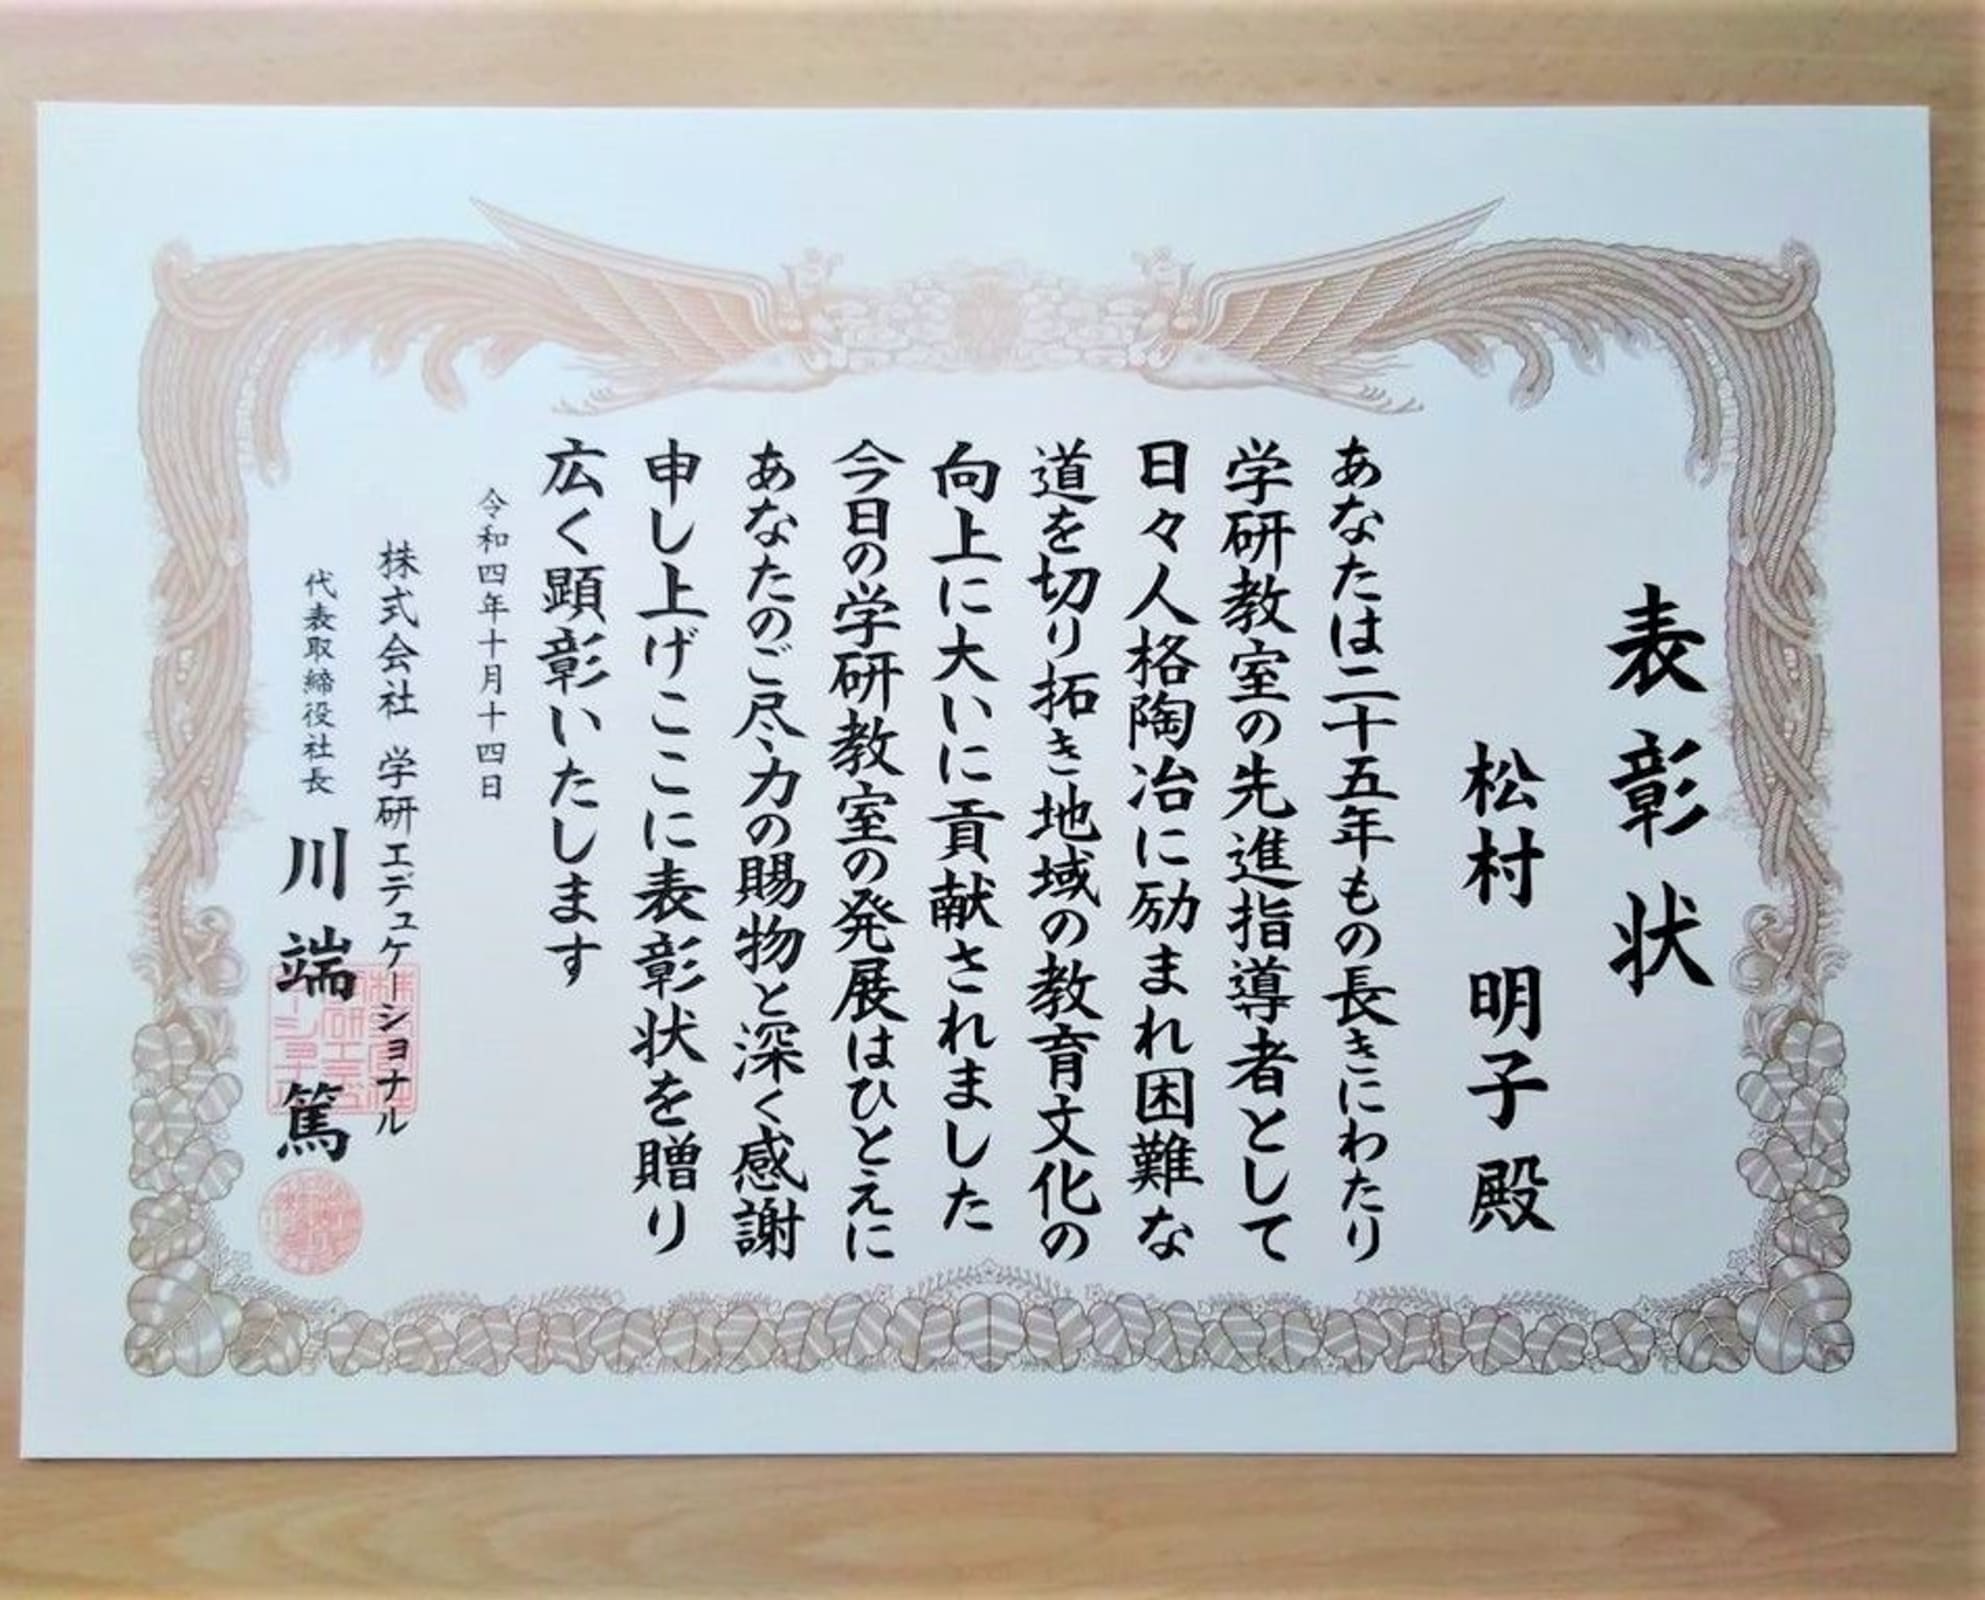 表彰状
松村 明子 殿
あなたは二十五年もの長きにわたり
学研教室の先進指導者として
日々人格陶冶に励まれ困難な
道を切り拓き地域の教育文化の
向上に大いに貢献されました
今日の学研教室の発展はひとえに
あなたのご尽力の賜物と深く感謝
申し上げここに表彰状を贈り
広く顕彰いたします
令和四年十月十四日
株式会社 学研エデュケーショナル
代表取締役社長 川端 篤